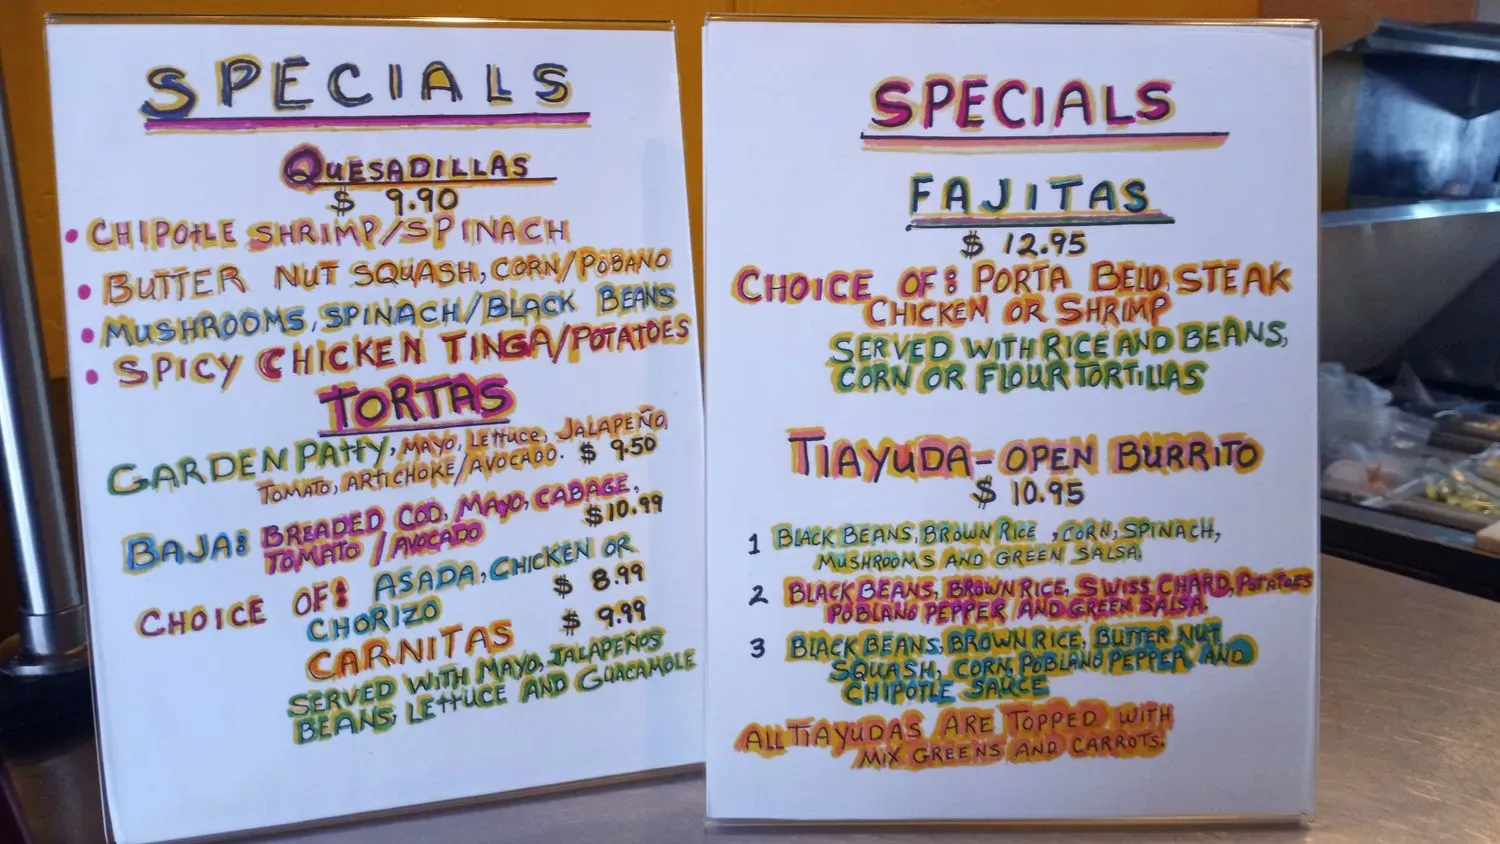 SPECIALS
QUESADILLAS
$ 9.90
• CHIPOTLE SHRIMP/SPINACH
• BUTTER NUT SQUASH, CORN/POBANO
• MUSHROOMS, SPINACH/BLACK BEANS
• SPICY CHICKEN TINGA/POTATOES
TORTAS
GARDEN PATTY, MAYO, LETTUCE, JALAPEÑO,
TOMATO, ARTICHOKE/AVOCADO. $ 9.50
BAJA: BREADED COD, MAYO, CABAGE,
TOMATO /AVOCADO $10.99
CHOICE OF: ASADA, CHICKEN OR
CHORIZO $ 8.99
CARNITAS $ 9.99
SERVED WITH MAYO, JALAPEÑOS
BEANS, LETTUCE AND GUACAMOLE
SPECIALS
FAJITAS
$ 12.95
CHOICE OF: PORTA BELLO, STEAK
CHICKEN OR SHRIMP
SERVED WITH RICE AND BEANS,
CORN OR FLOUR TORTILLAS
TIAYUDA- OPEN BURRITO
$ 10.95
1 BLACK BEANS, BROWN RICE, CORN, SPINACH,
MUSHROOMS AND GREEN SALSA.
2 BLACK BEANS, BROWN RICE, SWISS CHARD, POTATOES
POBLANO PEPPER AND GREEN SALSA.
3 BLACK BEANS, BROWN RICE, BUTTER NUT
SQUASH, CORN, POBLANO PEPPER AND
CHIPOTLE SAUCE
ALL TIAYUDAS ARE TOPPED WITH
MIX GREENS AND CARROTS.